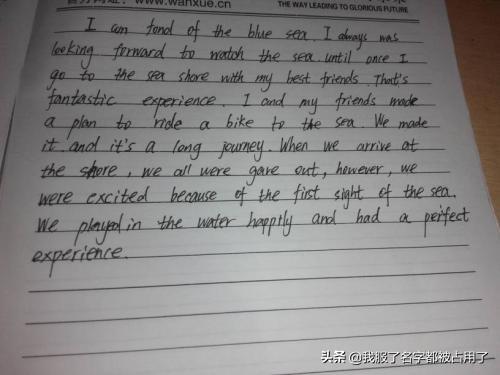 www.wanxue.cn
THE WAY LEADING TO GLORIOUS FUTURE
I am fond of the blue sea. I always was
looking forward to watch the sea until once I
go to the sea shore with my best friends. That's
fantastic experience. I and my friends made
a plan to ride a bike to the sea. We made
it and it's a long journey. When we arrive at
the shore, we all were gave out, however, we
were excited because of the first sight of the sea.
We played in the water happily and had a perfect
experience.
头条 @我服了名字都被占用了